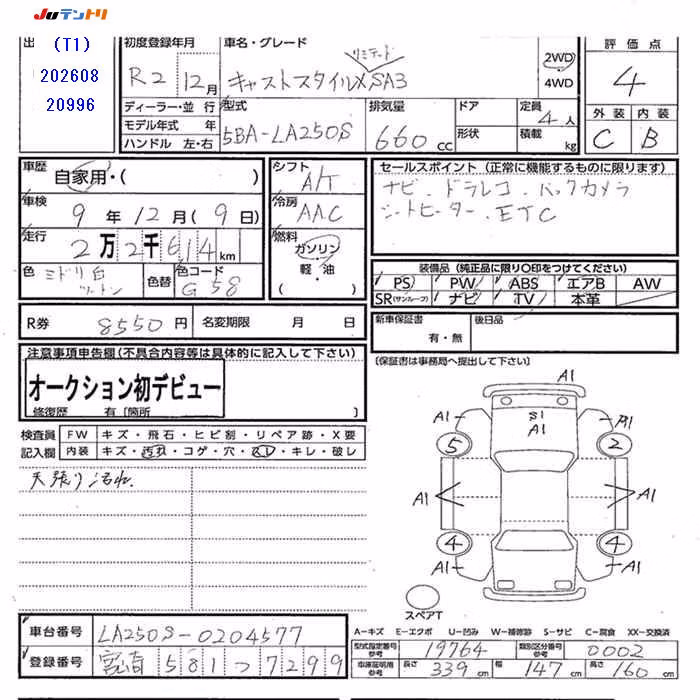 JUテントリ
出 (T1)
202608
20996
初度登録年月 車名・グレード リミテード 評価点
R2年12月 キャストスタイルX SA3 2WD 4WD 4
ディーラー・並行 型式 排気量 ドア 定員 4人 外装 内装
モデル年式 年 5BA-LA250S 660cc 形状 積載 kg C B
ハンドル 左・右
車歴 自家用・( ) シフト A/T セールスポイント(正常に機能するものに限ります)
車検 9年12月(9日) 冷房 AAC ナビ、ドラレコ、バックカメラ
走行 2万2千614km 燃料 ガソリン シートヒーター、ETC
色 ミドリ白 ツートン 色替 色コード G58 軽・油 ( )
装備品(純正品に限り○印をつけてください)
PS PW ABS エアB AW
SR(サンルーフ) ナビ TV 本革
R券 8550円 名変期限 月 日 新車保証書 有・無 後日品
注意事項申告欄(不具合内容等は具体的に記入して下さい) 〔保証書は事務局へ提出して下さい〕
オークション初デビュー
修復歴 有〔箇所 〕
検査員 FW キズ・飛石・ヒビ割・リペア跡・X要
記入欄 内装 キズ・汚れ・コゲ・穴・スレ・キレ・破レ
天張り汚れ
A1
A1 S1 A1 A1
5 2
A1 A1
4 4
A1 A1
スペアT
車台番号 LA250S-0204577
登録番号 宮崎 581つ7299
A-キズ E-エクボ U-凹み W-補修跡 S-サビ C-腐食 XX-交換済
型式指定番号 参考 19764 類別区分番号 参考 0002
車庫証明用 参考 長さ 339cm 幅 147cm 高さ 160cm